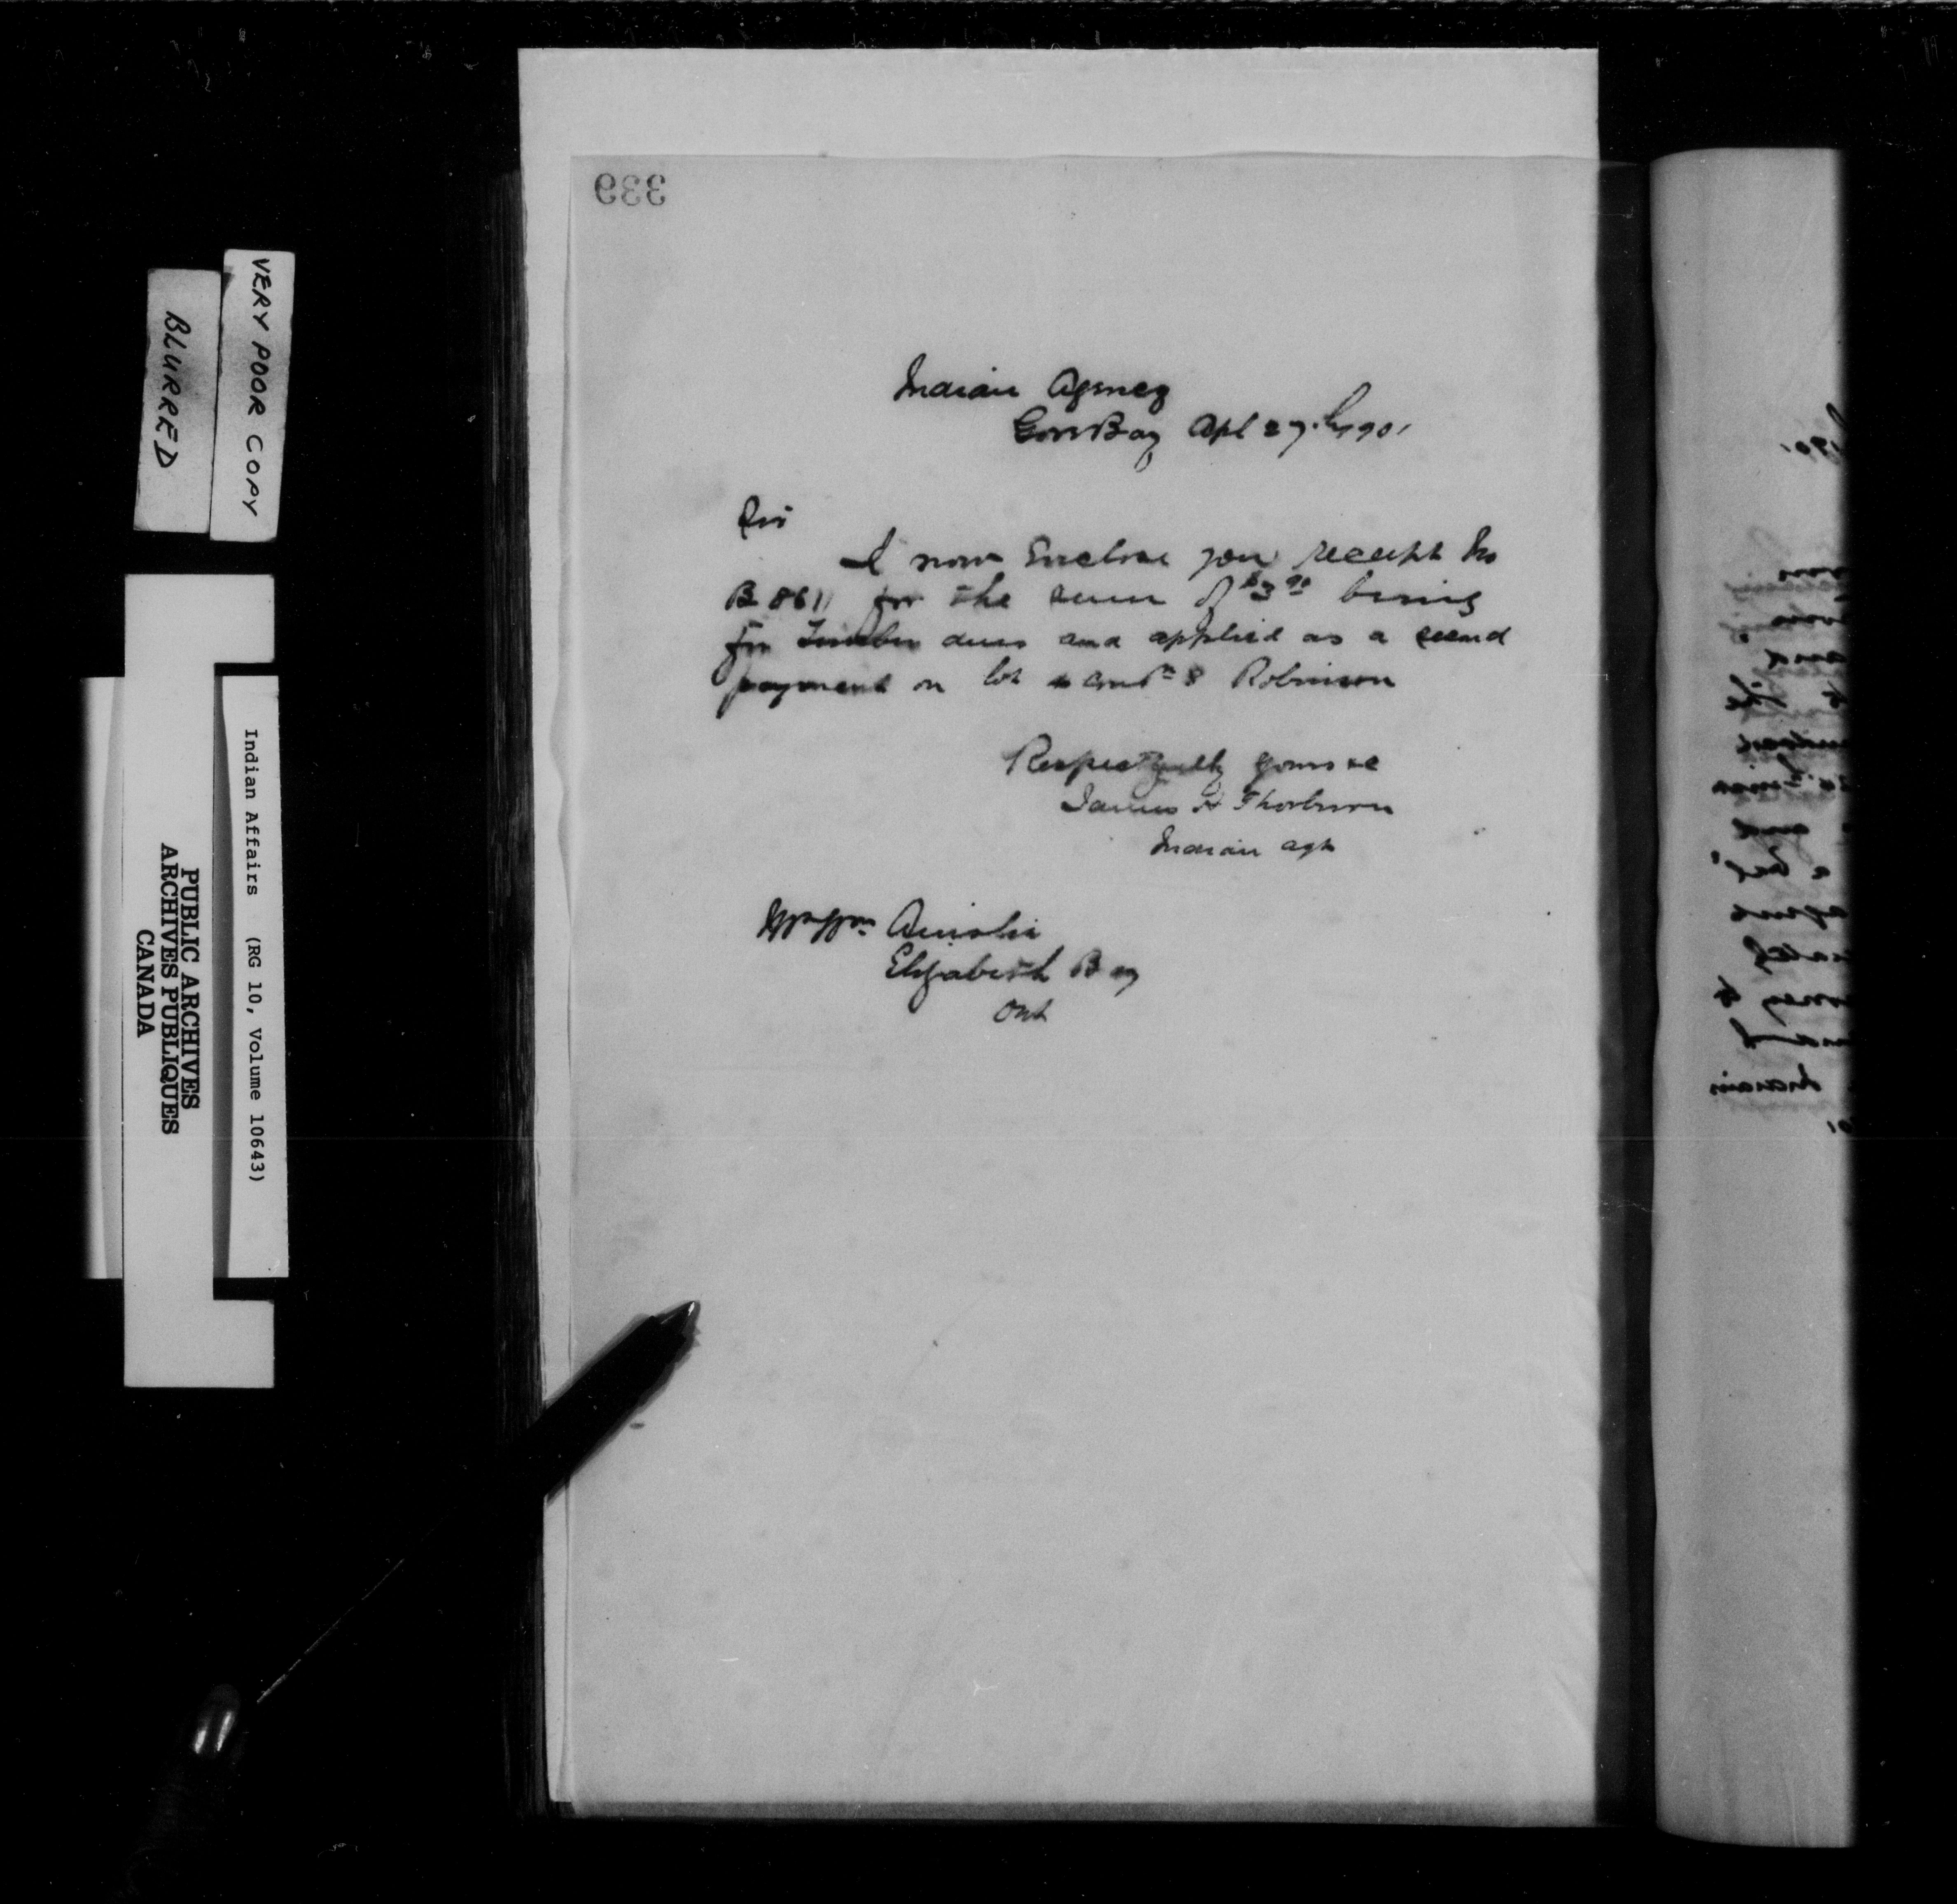 339
Indian Agency
Gore Bay Apl 27th 1901
Sir
I now Enclose you receipt No
B 8611 for the sum of $3.90 being
for Timber dues and applied as a second
payment on lot Con 8 Robinson
Respectfully yours &c
James H Thorburn
Indian agt
Wm Ainslie
Elizabeth Bay
Ont
VERY POOR COPY
BLURRED
Indian Affairs (RG 10, Volume 10643)
PUBLIC ARCHIVES
ARCHIVES PUBLIQUES
CANADA